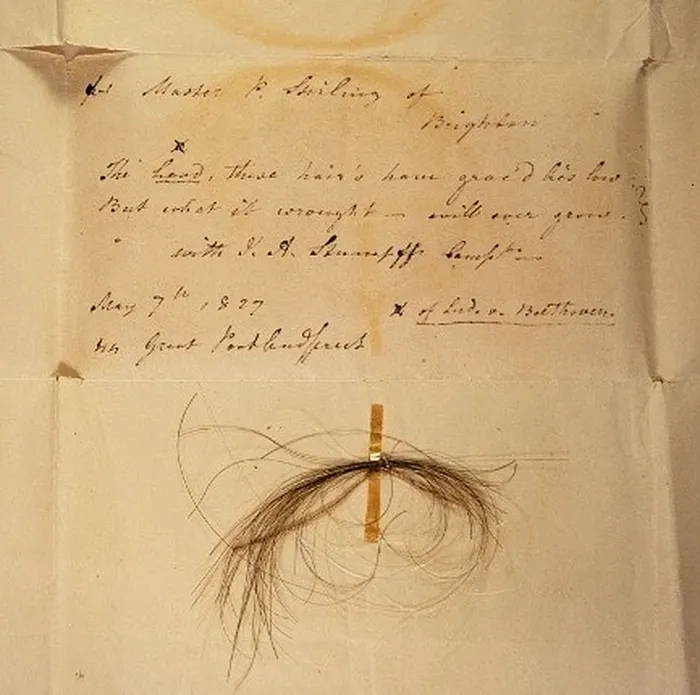 for Master P. Stirling of
Brighton
x
The head, these hair's have grac'd lies low
But what it wrought – will ever grow.
with J. A. Stumpff's Compts
May 7th, 1827
x of Lud. v. Beethoven.
Great Portland Street